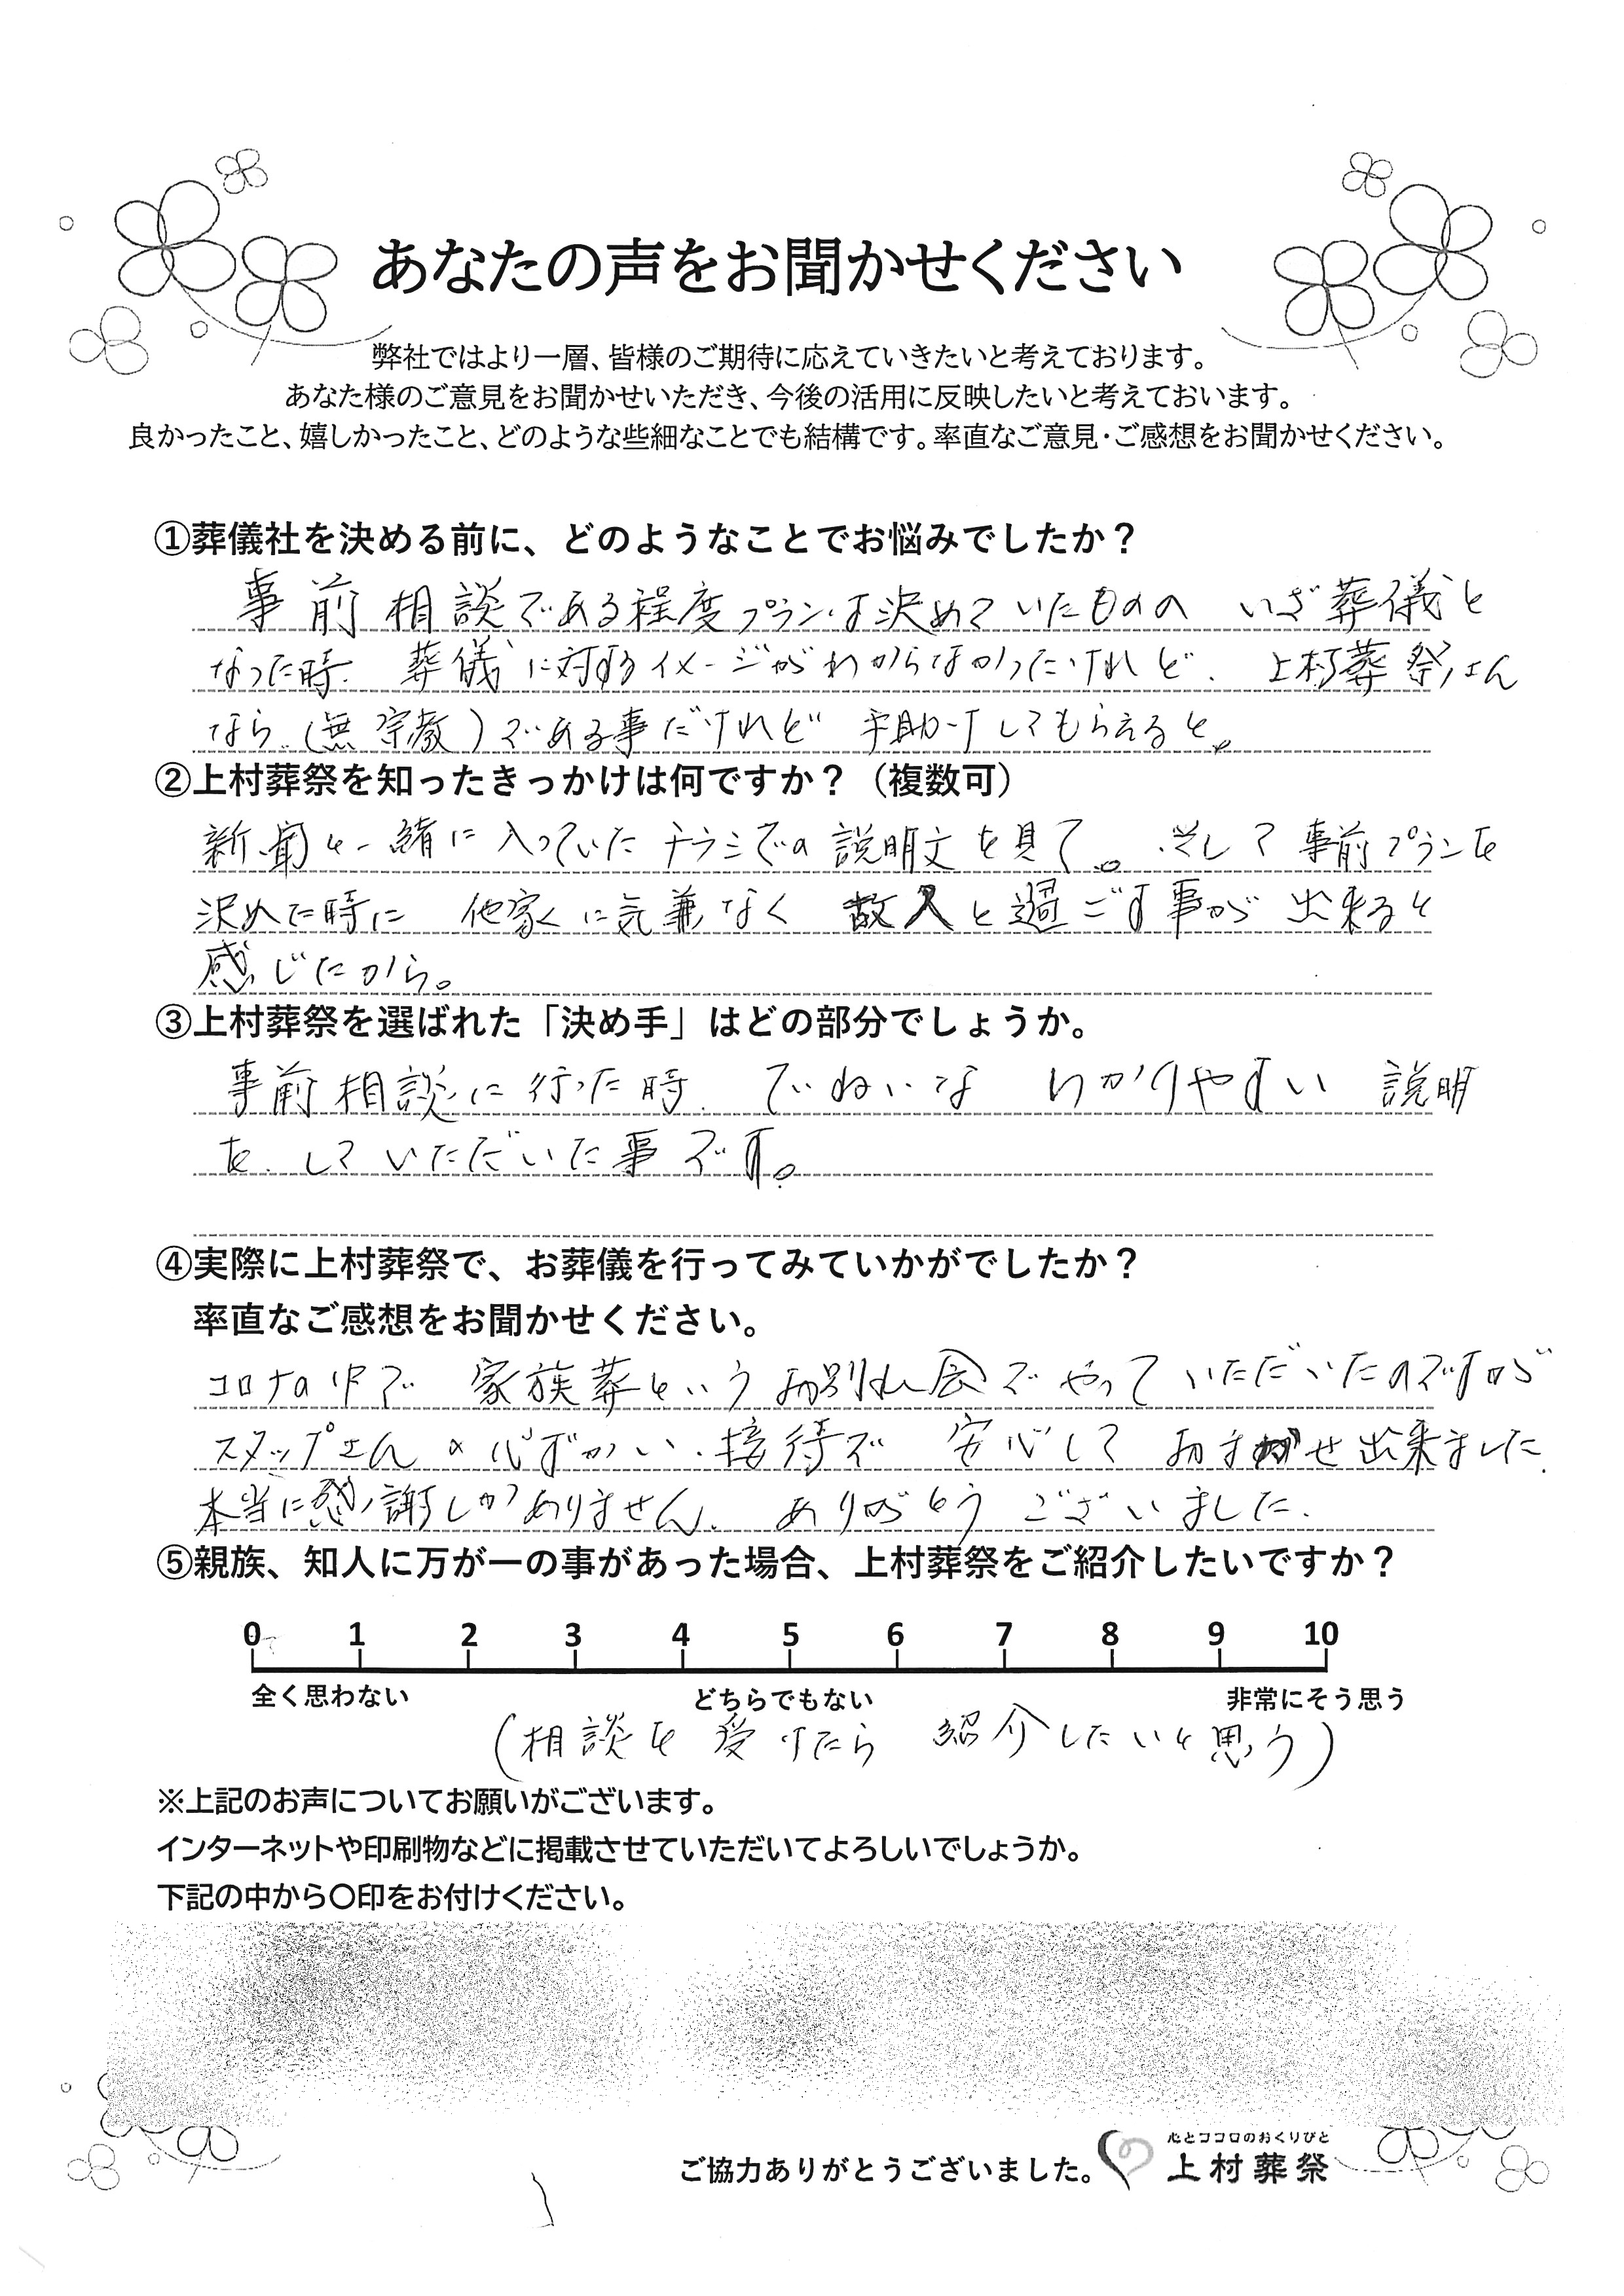 あなたの声をお聞かせください
弊社ではより一層、皆様のご期待に応えていきたいと考えております。
あなた様のご意見をお聞かせいただき、今後の活用に反映したいと考えておいます。
良かったこと、嬉しかったこと、どのような些細なことでも結構です。率直なご意見・ご感想をお聞かせください。
①葬儀社を決める前に、どのようなことでお悩みでしたか?
事前相談である程度プランは決めていたものの いざ葬儀と
なった時 葬儀に対するイメージがわからなかったけれど、上村葬祭さん
なら、(無宗教)である事だけれど 手助けしてもらえると。
②上村葬祭を知ったきっかけは何ですか?(複数可)
新聞と一緒に入っていたチラシでの説明文を見て。そして事前プランを
決めた時に 他家くに気兼なく 故人と過ごす事が出来ると
感じたから。
③上村葬祭を選ばれた「決め手」はどの部分でしょうか。
事前相談に行った時、ていねいな わかりやすい 説明
を、していただいた事です。
④実際に上村葬祭で、お葬儀を行ってみていかがでしたか?
率直なご感想をお聞かせください。
コロナの中で 家族葬というお別れ会でやっていただいたのですが
スタッフさんの心ずかい、接待で 安心しておまかせ出来ました。
本当に感謝しかありません。ありがとうございました。
⑤親族、知人に万が一の事があった場合、上村葬祭をご紹介したいですか?
0 1 2 3 4 5 6 7 8 9 10
全く思わない どちらでもない 非常にそう思う
(相談を受けたら 紹介したいと思う)
※上記のお声についてお願いがございます。
インターネットや印刷物などに掲載させていただいてよろしいでしょうか。
下記の中から〇印をお付けください。
心とココロのおくりびと
ご協力ありがとうございました。 上村葬祭